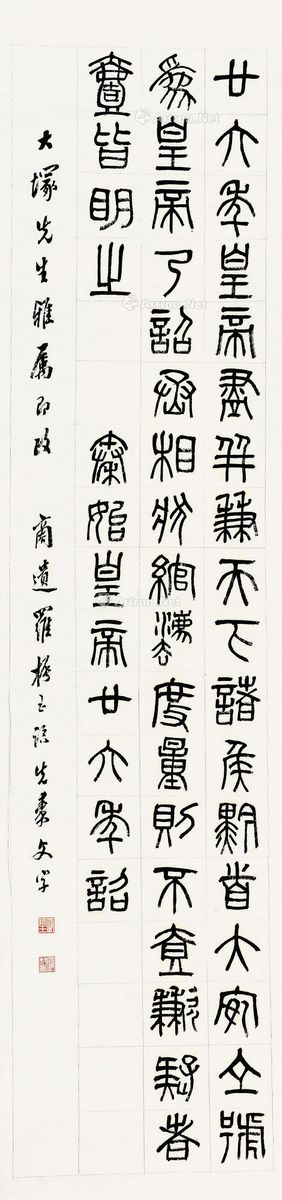 廿六年皇帝盡并兼天下諸侯黔首大安立號
為皇帝乃詔丞相狀綰灋度量則不壹歉疑者
皆明之 秦始皇帝廿六年詔
大塚先生雅屬即政 商遺羅振玉臨先秦文字
Artron.Net